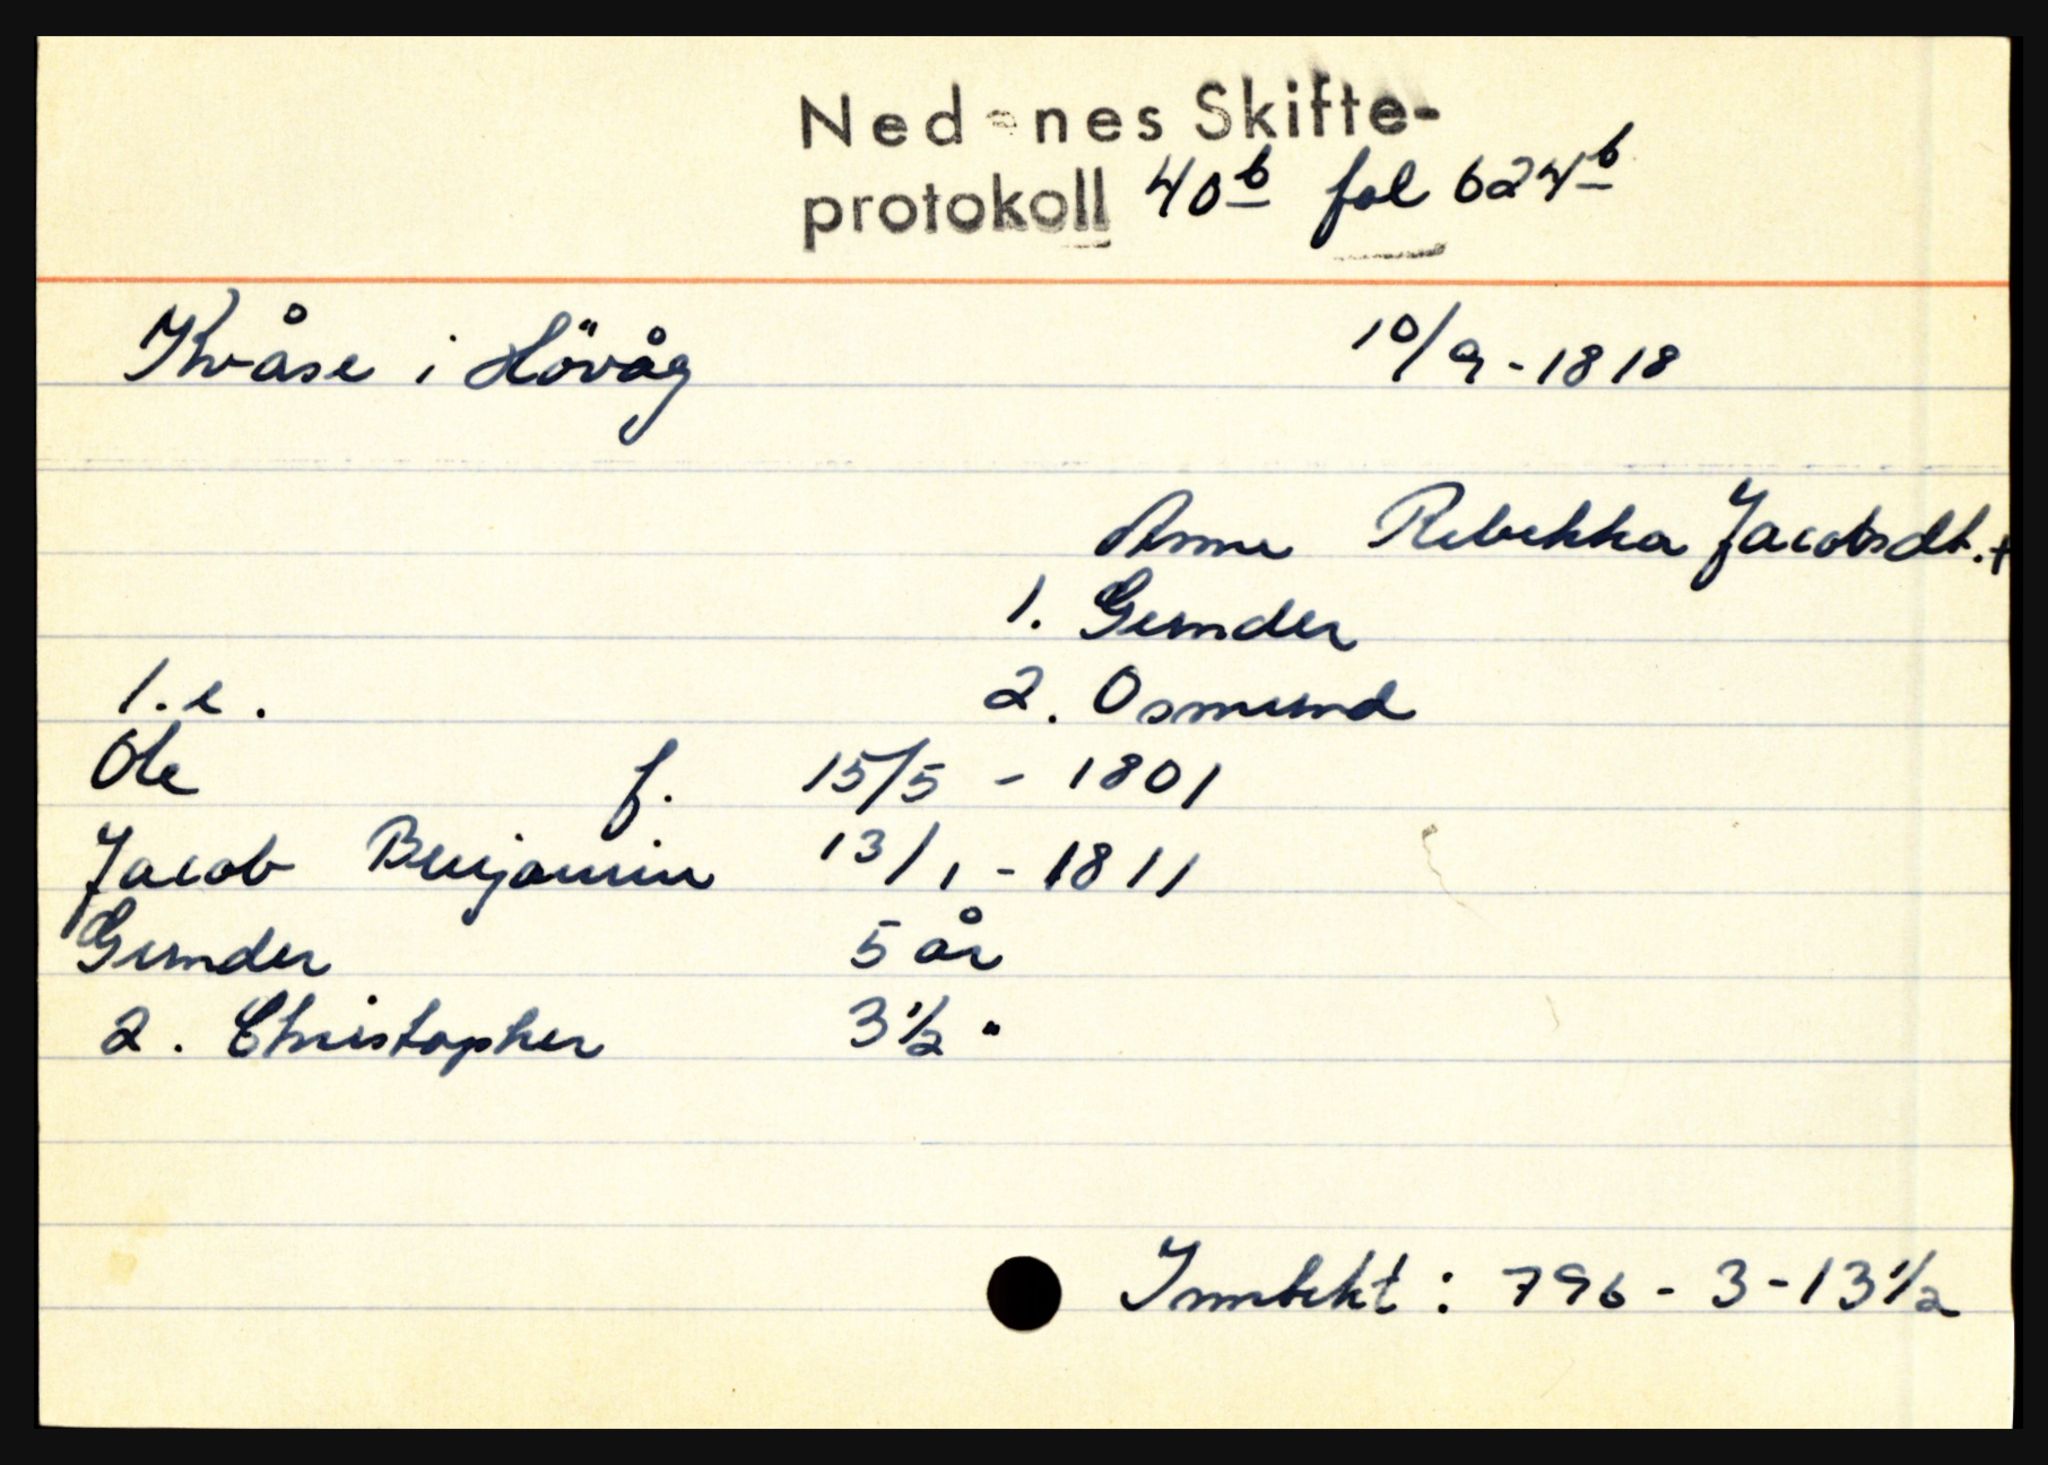 Nedenes Skifte-
protokoll 40b fol 624b
Kvåse i Hövåg 10/9-1818
Anne Rebekka Jacobsdt. +
1. Gunder
1. e. 2. Osmund
Ole f. 15/5 - 1801
Jacob Benjamin 13/1 - 1811
Gunder 5 år
2. Christopher 3 1/2 "
Inntekt : 796 - 3 - 13 1/2